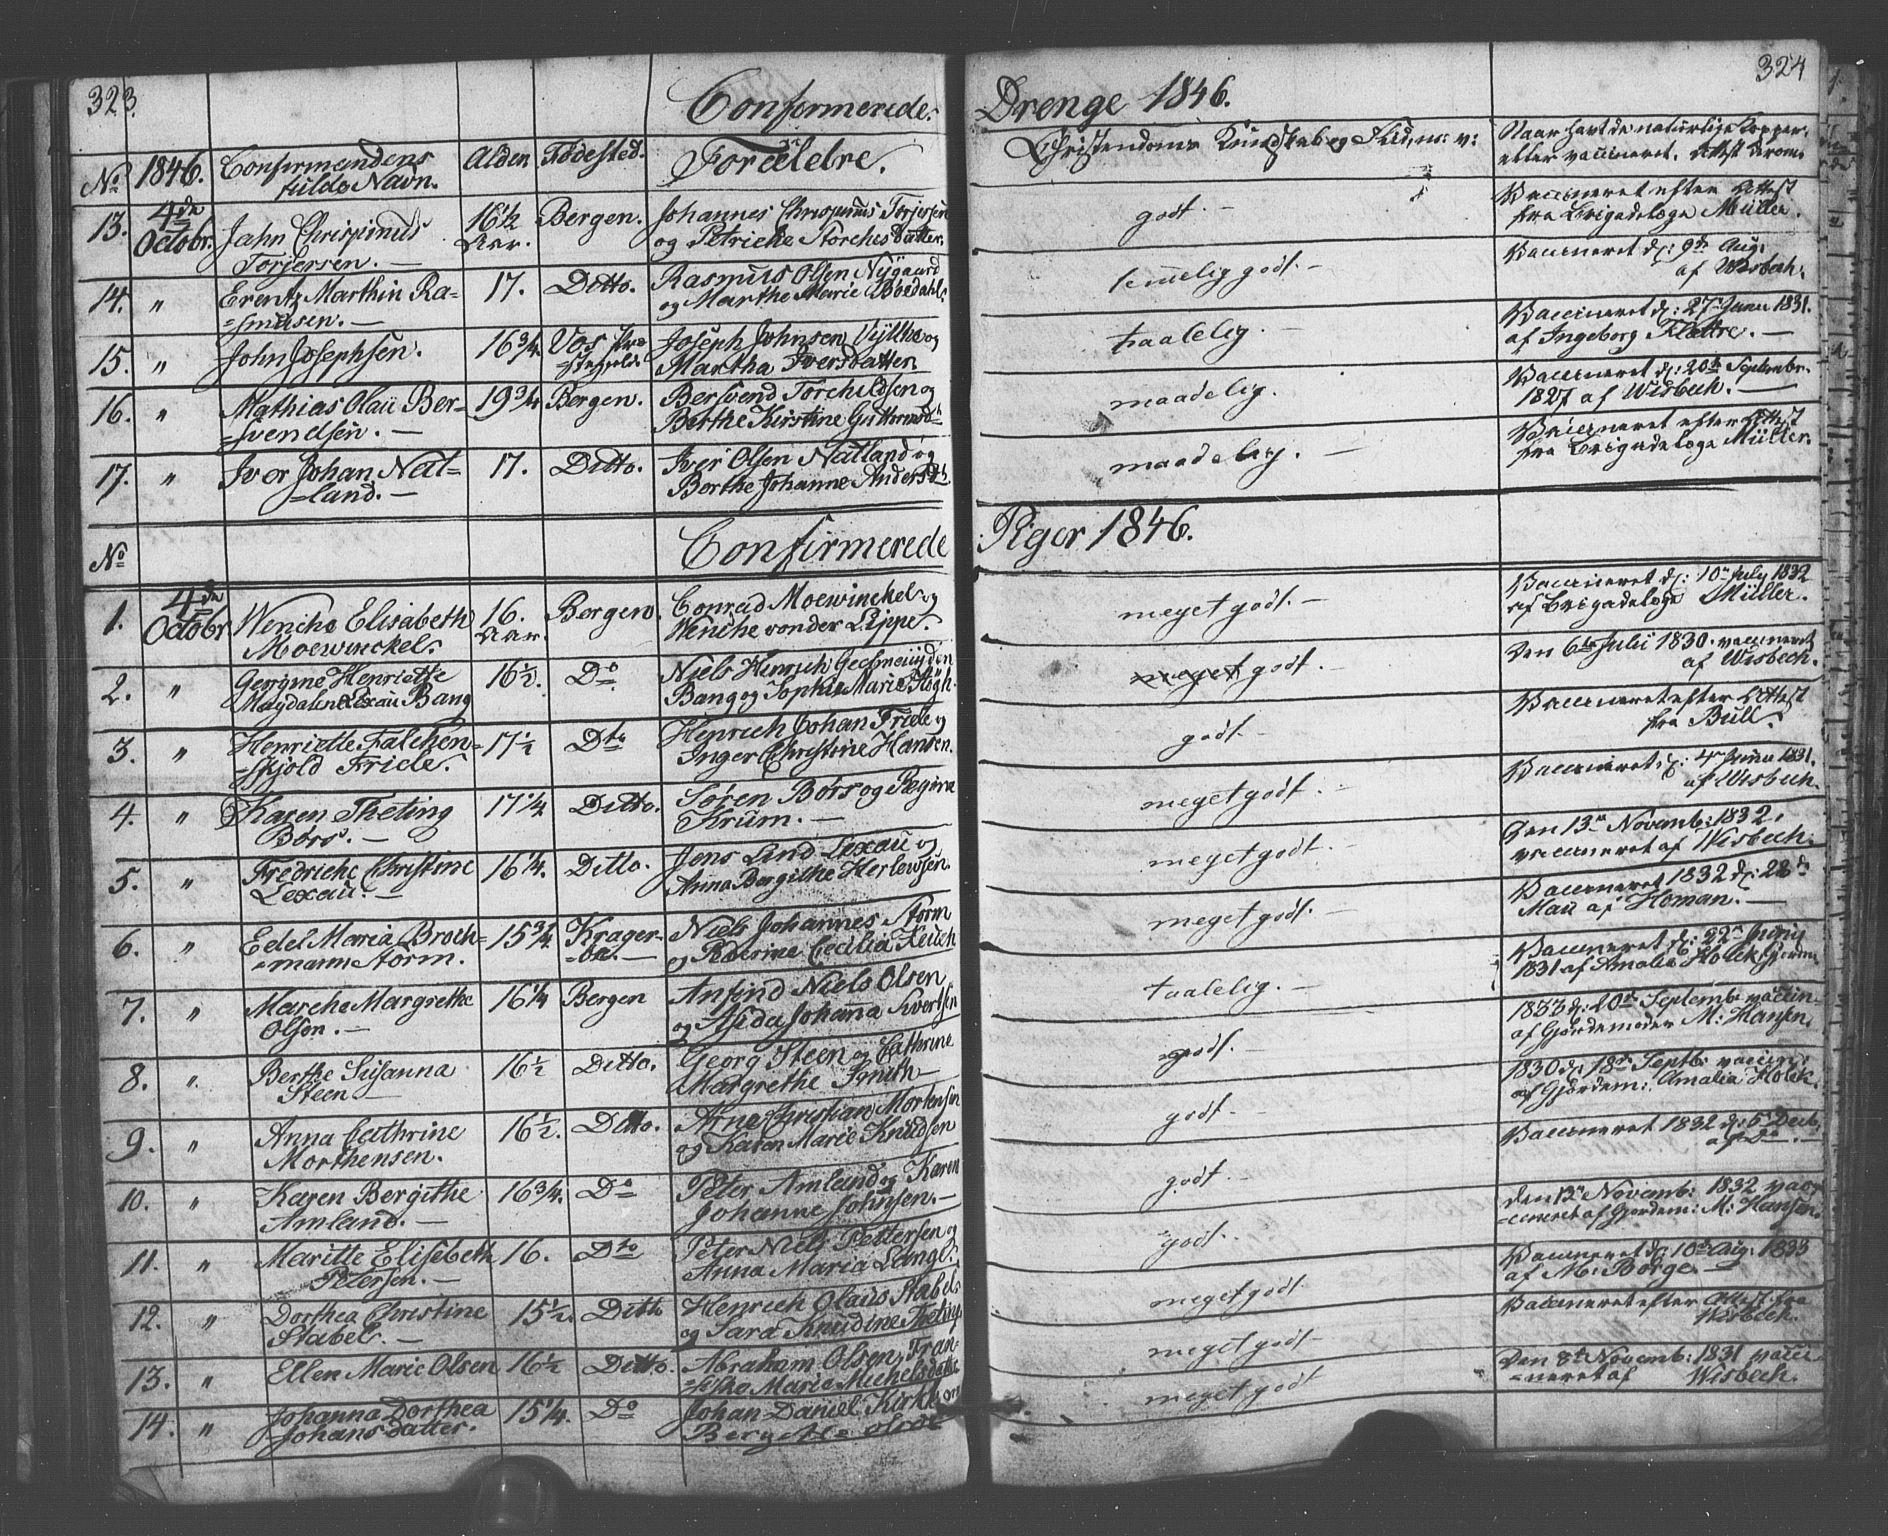 323. Confirmerede Drenge 1846. 324
No 1846. Confirmandens fulde Navn. Alder Fødested. Forældre. Christendoms Kundskab og Flid, m: v: Naar havt de naturlige Kopper eller vaccineret. Attest derom.
13. 4de Octobr. Jahn Chrispinus Torjersen. — 16 1/2 Aar. Bergen. Johannes Chrispinus Torjersen og Petricke Storches datter. godt. — Vaccineret efter Attest fra Brigadelæge Müller.
14. " Erentz Marthin Rasmusen. — 17. Ditto. Rasmus Olsen Nygaard og Marthe Marie Boedahl. temelig godt. — Vaccineret d: 9de Aug: af Wisbech.
15. " John Josephsen. 16 3/4. Vos Præstegield. Joseph Johnsen og Martha Iversdatter. taalelig. — Vaccineret d: 27 Janu 1831. af Ingeborg Flattre. —
16. " Mathias Olaü Bersvendsen. — 19 3/4 Bergen. Bersvend Torchildsen og Berthe Kirstine maadelig. Vaccineret d: 20de Septembr. 1827 af Wisbech. —
17. " Iver Johan Natland. — 17. Ditto. Iver Olsen Natland og Berthe Johanne Anders Dt. maadelig. — Vaccineret efter Attest fra Brigadelæge Müller.
No Confirmerede Piger 1846.
1. 4de Octobr Wenche Elisabeth Moewinckel. 16. Aar. Bergen. Conrad Moewinckel og Wenche vonder Lippe. meget godt. — Vaccineret d: 10de July 1832 af Brigadelæge Müller.
2. " Gergine Henriette Magdalene Lexau Bang 16 1/2. Do Niels Henrich Geelmuyden Bang og Sophie Marie Høgh. meget godt. — Den 6te Julii 1830. vaccineret af Wisbech.
3. " Henriette Falchenskjold Friele. 17 1/2 Dto Henrich Johan Friele og Inger Christine Hansen. godt. — Vaccineret efter Attest fra Bull.
4. " Karen Theting Børs. — 17 1/4 Ditto. Søren Børs og Regina Krüm. — meget godt. — Vaccineret d: 4de 1831. af Wisbech.
5. " Fredriche Christine Lexau. — 16 1/4. Ditto. Jens Lind Lexau og Anna Bergithe Herlewsen. meget godt. — Den 13de Novemb: 1832. vaccineret af Wisbech.
6. " Edel Maria Brochmann Storm. 15 3/4 Kragerøe. — Niels Johannes Storm og Cecilia meget godt. — Vaccineret 1832 d: 22de Mai af Homan. —
7. " Marche Margrethe Olsen. — 16 1/4 Bergen Anfind Niels Olsen og Asida Johanna Sivertsen taalelig. — Vaccineret d: 22de 1831 af Amalia Holck
8. " Berthe Susanna Steen — 16 1/2 Ditto. Georg Steen og Cathrine Margrethe Smith — godt. — 1833 d: 20de Septemb vaccin. af Gjordemoder M: Hansen.
9. " Anna Cathrine Morthensen. 16 1/2. Ditto. Arne Christian Mortensen og Karen Marie Knudsen godt. — 1830 d: 18de Septb: vaccin: af Gjordem: Amalia Holck.
10. " Karen Bergithe Amland. — 16 3/4. Do Peter Amland og Karen Johanne Johnsen. — godt. — Vaccineret 1832 d: 5te Decb. af Do. —
11. " Maritte Elisebeth Petersen. — 16. Dto Peter Niels Pettersen og Anna Maria Lange. godt. — Den 13de Novemb: 1832 vaccineret af Gjordem: M: Hansen.
12. " Dorthea Christine Stabel. — 15 1/2. Ditto Henrich Olaus Stabel og Sara Knudine Theting. meget godt. — Vaccineret d: 10de Aug: 1833 af M: Borge. —
13. " Ellen Marie Olsen 16 1/2 Ditto. Abraham Olsen, Fransiska Marie Michelsdatter. meget godt. — Vaccineret efter Attest fra Wisbech.
14. " Johanna Dorthea Johansdatter. 15 1/4. Do Johan Daniel meget godt Den 8de Novemb: 1831 vaccineret af Wisbech.